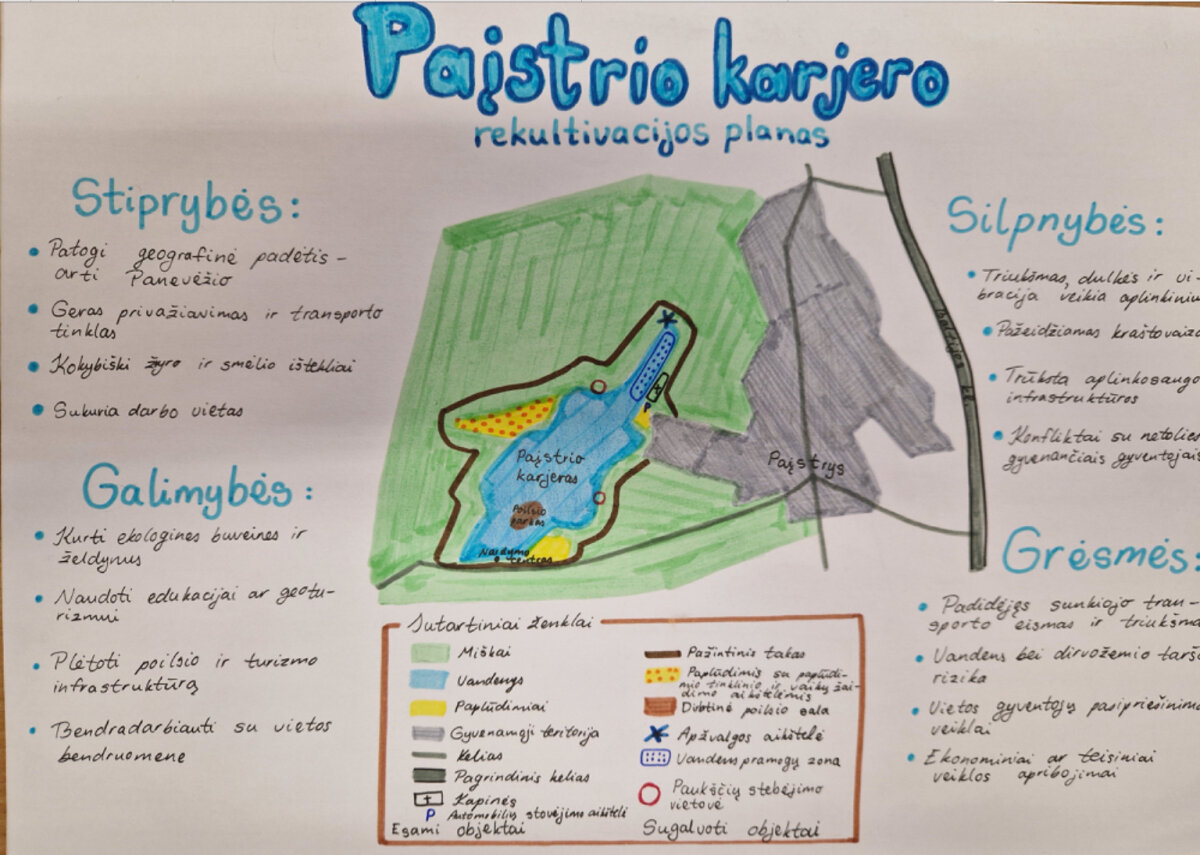 Paįstrio karjero
rekultivacijos planas
Stiprybės:
Patogi geografinė padėtis -
arti Panevėžio
Geras privažiavimas ir transporto
tinklas
Kokybiški žyro ir smėlio ištekliai
Sukuria darbo vietas
Galimybės:
Kurti ekologines buveines ir
želdynus
Naudoti edukacijai ar geotu-
rizmui
Plėtoti poilsio ir turizmo
infrastruktūrą
Bendradarbiauti su vietos
bendruomene
Paįstrio
karjeras
Poilsio
parkas
Nardymo
centras
P
Paįstrys
Silpnybės:
Triukšmas, dulkės ir vi-
bracija veikia aplinkinius
Pažeidžiamas kraštovaizd
Trūksta aplinkosaugo
infrastruktūros
Konfliktai su netolies
gyvenančiais gyventojais
Grėsmės:
Padidėjęs sunkiojo tran-
sporto eismas ir triukšma
Vandens bei dirvožemio tarš
rizika
Vietos gyventojų pasipriešinima
veiklai
Ekonominiai ar teisiniai
veiklos apribojimai
Sutartiniai ženklai
Miškai
Vandenys
Paplūdimiai
Gyvenamoji teritorija
Kelias
Pagrindinis kelias
Kapinės
P Automobilių stovėjimo aikštelė
Esami objektai
Pažintinis takas
Paplūdimis su paplūdi-
mio tinklinio ir vaikų žai-
dimo aikštelėmis
Dirbtinė poilsio sala
Apžvalgos aikštelė
Vandens pramogų zona
Paukščių stebėjimo
vietovė
Sugalvoti objektai